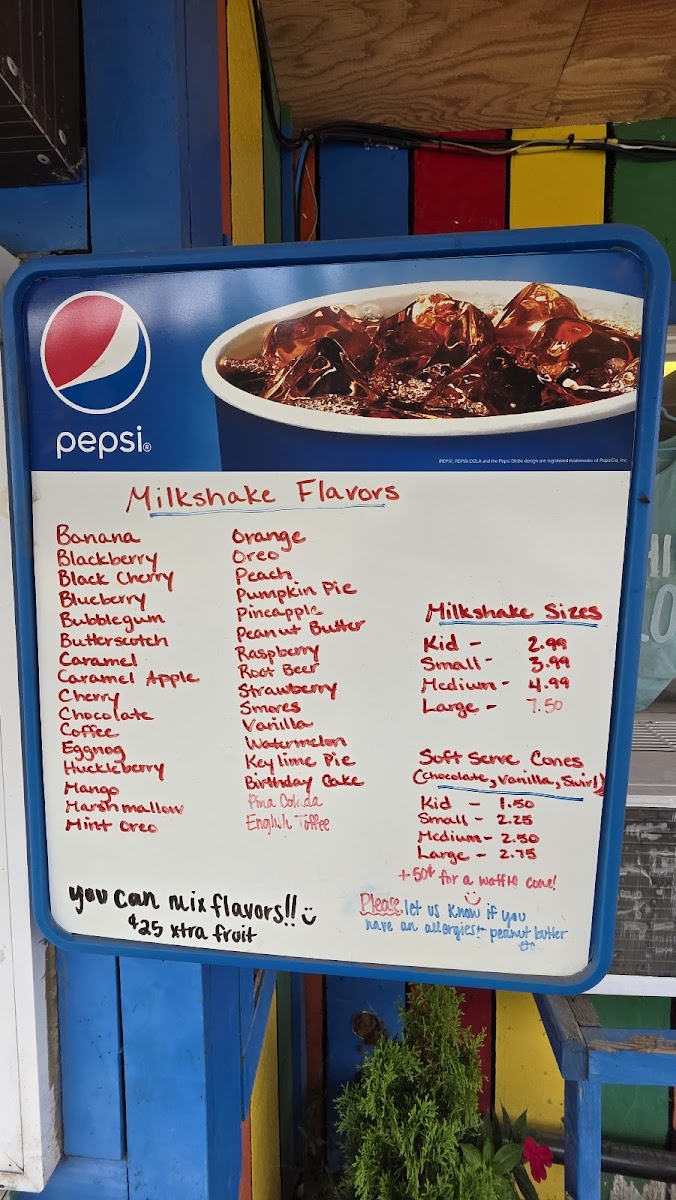 pepsi®
PEPSI, PEPSI-COLA and the Pepsi Globe design are registered trademarks of PepsiCo, Inc.
Milkshake Flavors
Banana
Blackberry
Black Cherry
Blueberry
Bubblegum
Butterscotch
Caramel
Caramel Apple
Cherry
Chocolate
Coffee
Eggnog
Huckleberry
Mango
Marshmallow
Mint Oreo
Orange
Oreo
Peach
Pumpkin Pie
Pineapple
Peanut Butter
Raspberry
Root Beer
Strawberry
Smores
Vanilla
Watermelon
Key lime Pie
Birthday Cake
Pina Colada
English Toffee
Milkshake Sizes
Kid - 2.99
Small - 3.99
Medium - 4.99
Large - 7.50
Soft Serve Cones
(Chocolate, Vanilla, Swirl)
Kid - 1.50
Small - 2.25
Medium - 2.50
Large - 2.75
+ 50¢ for a waffle cone!
you can mix flavors!!
$25 xtra fruit
Please let us know if you
have an allergiest peanut butter
etc